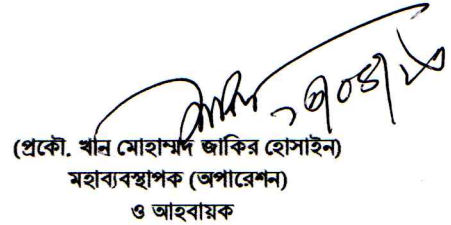 (প্রকৌ. খান মোহাম্মদ জাকির হোসাইন)
মহাব্যবস্থাপক (অপারেশন)
ও আহবায়ক